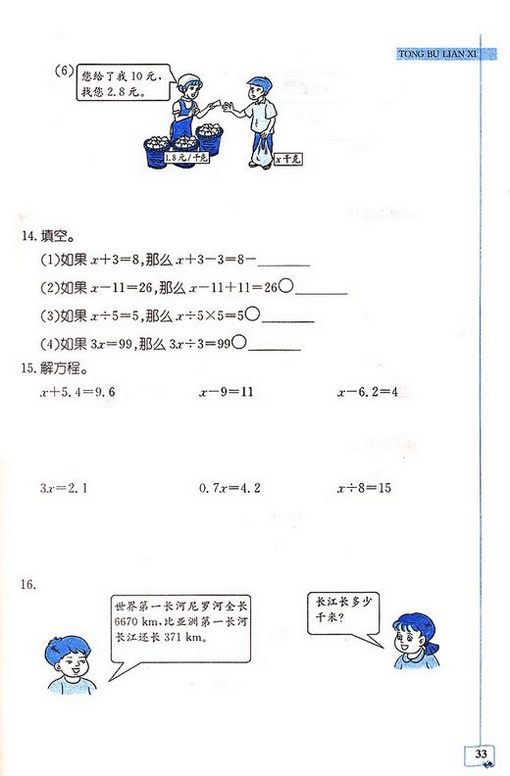 TONG BU LIAN XI
(6)
您给了我10元，
找您2.8元。
1.8元/千克
x千克
14.填空。
(1)如果x+3=8,那么x+3-3=8-______
(2)如果x-11=26,那么x-11+11=26○______
(3)如果x÷5=5,那么x÷5×5=5○______
(4)如果3x=99,那么3x÷3=99○______
15.解方程。
x+5.4=9.6 x-9=11 x-6.2=4
3x=2.1 0.7x=4.2 x÷8=15
16.
世界第一长河尼罗河全长
6670 km,比亚洲第一长河
长江还长371 km。
长江长多少
千米?
33